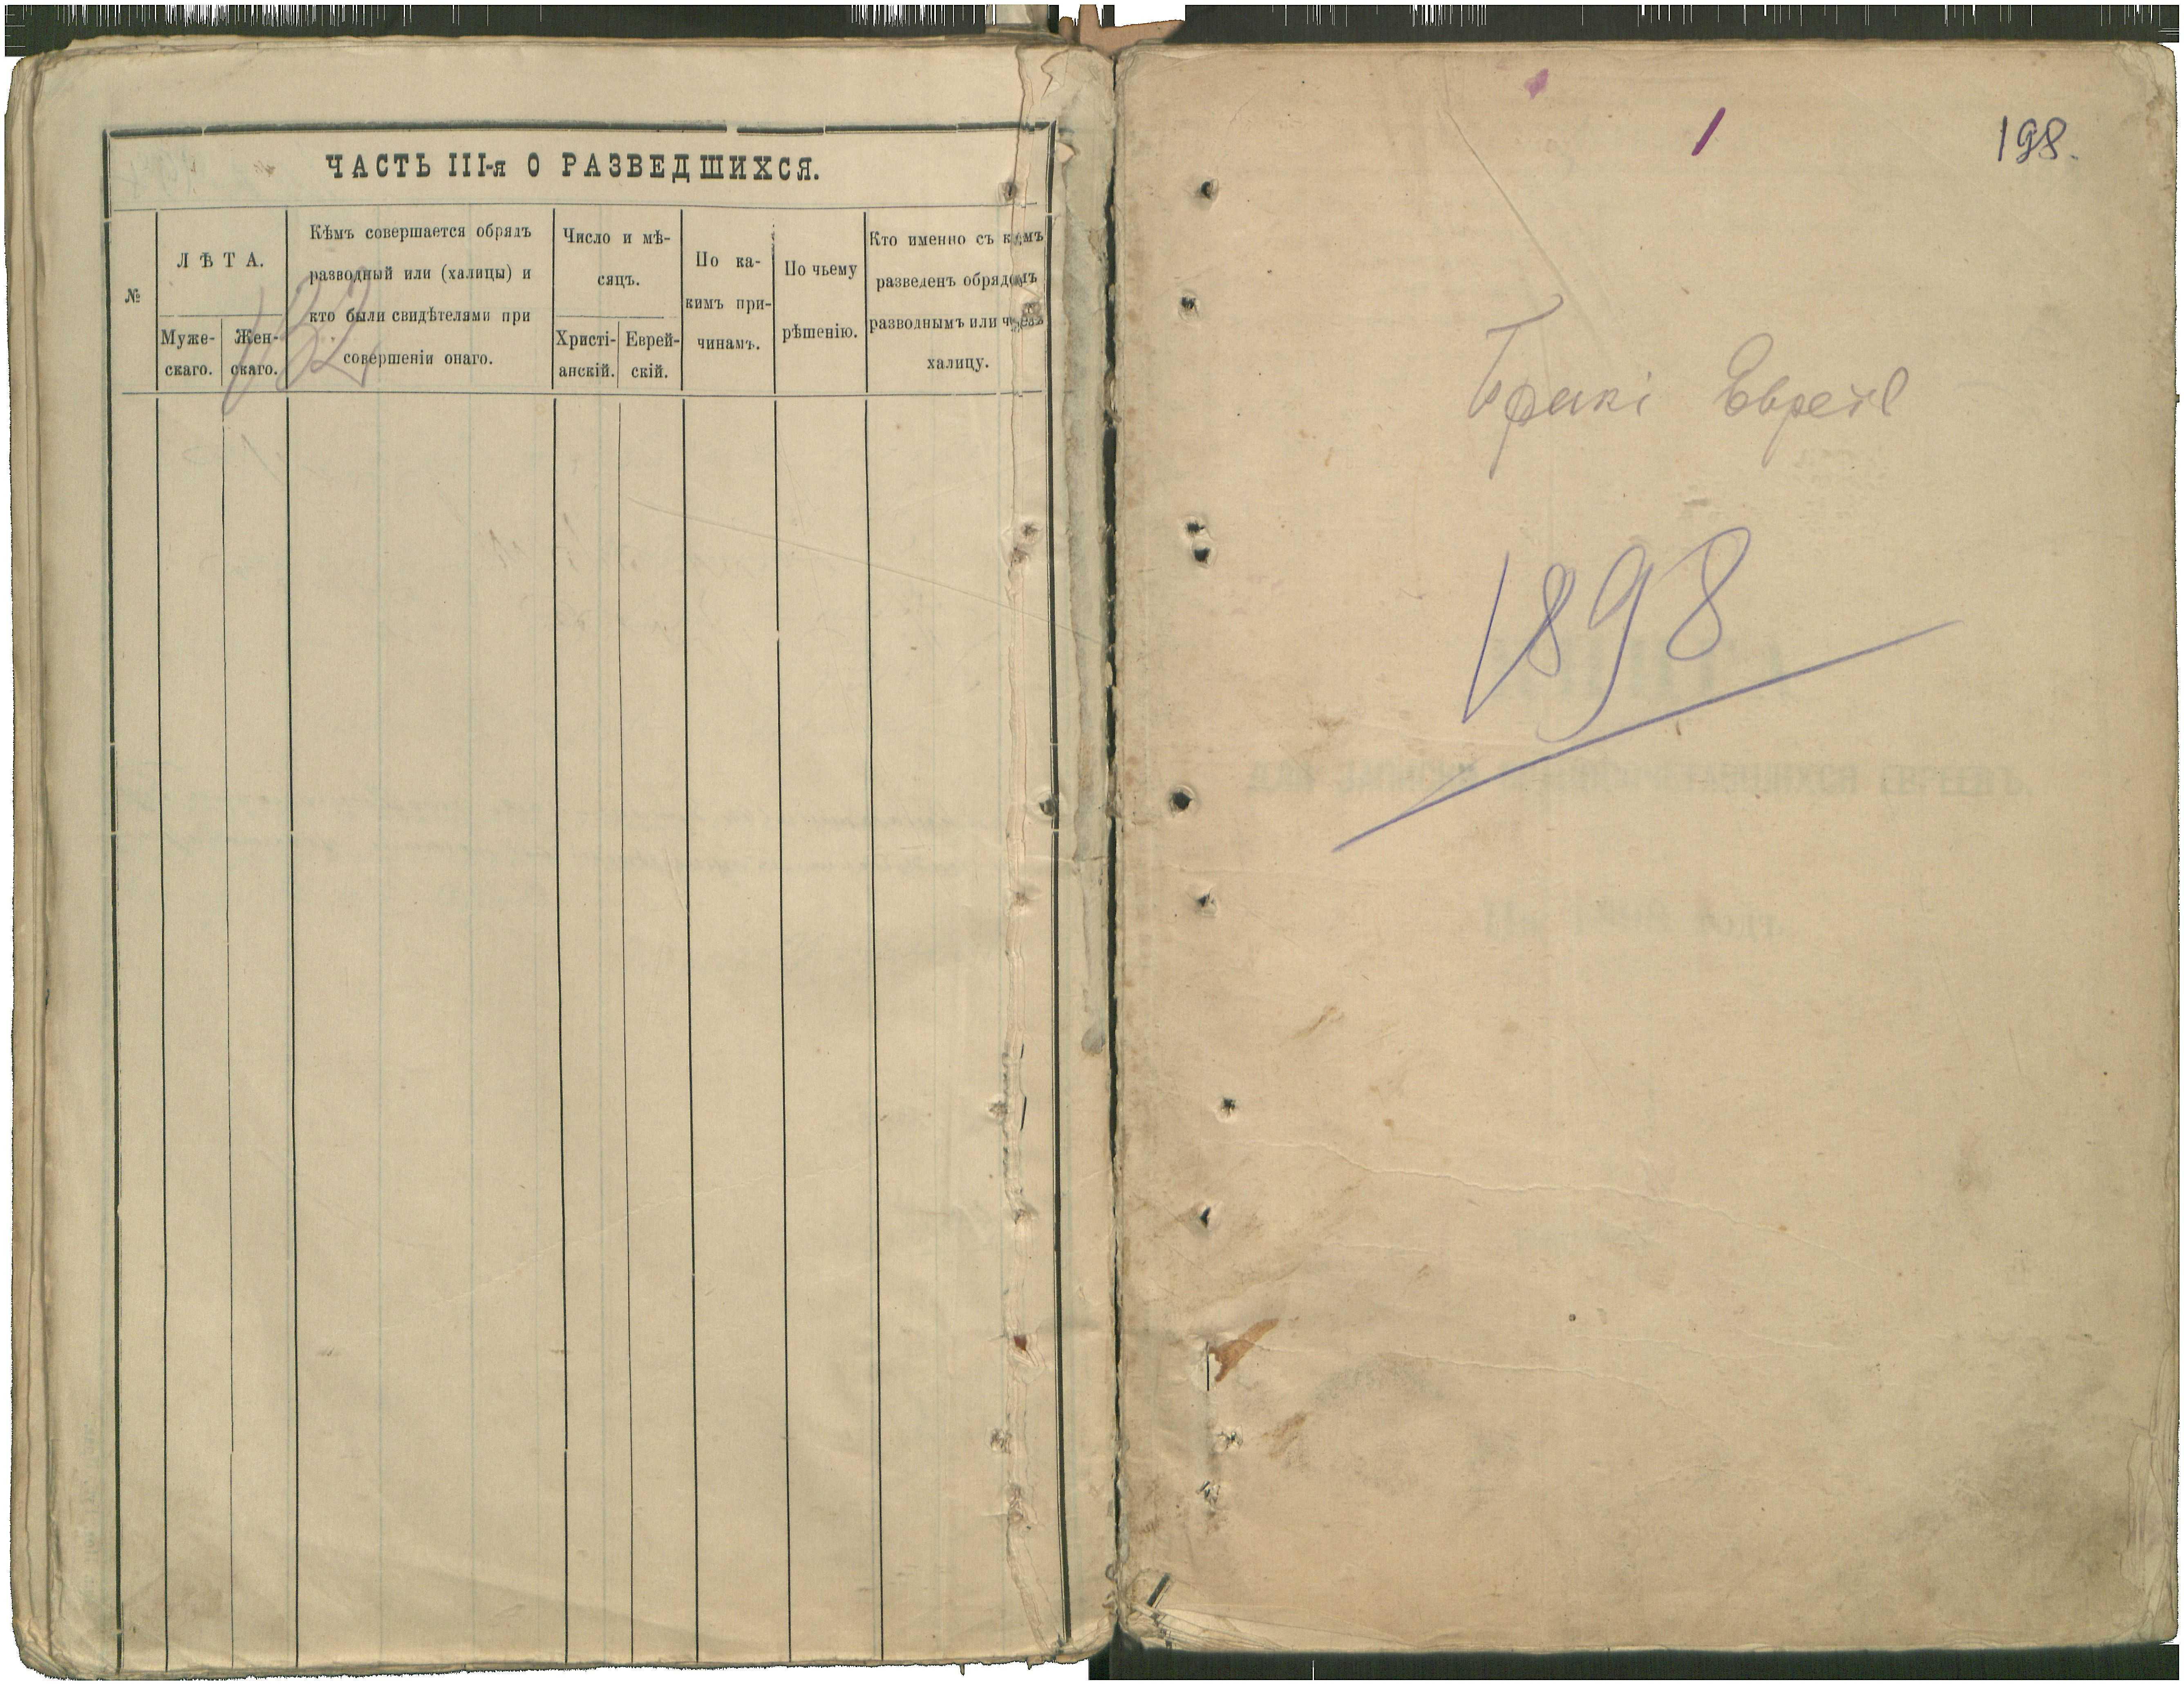 ЧАСТЬ III-я О РАЗВЕДШИХСЯ.
№
ЛѢТА.
Муже-
скаго.
Жен-
скаго.
132
Кѣмъ совершается обрядъ
разводный или (халицы) и
кто были свидѣтелями при
совершеніи онаго.
Число и мѣ-
сяцъ.
Христі-
анскій.
Еврей-
скій.
По ка-
кимъ при-
чинамъ.
По чьему
рѣшенію.
Кто именно съ кѣмъ
разведенъ обрядомъ
разводнымъ или чрезъ
халицу.
1
198.
Бракі Еврей
1898
ДЛЯ ЗАПИСКИ БРАКОСОЧЕТАВШИХСЯ ЕВРЕЕВЪ.